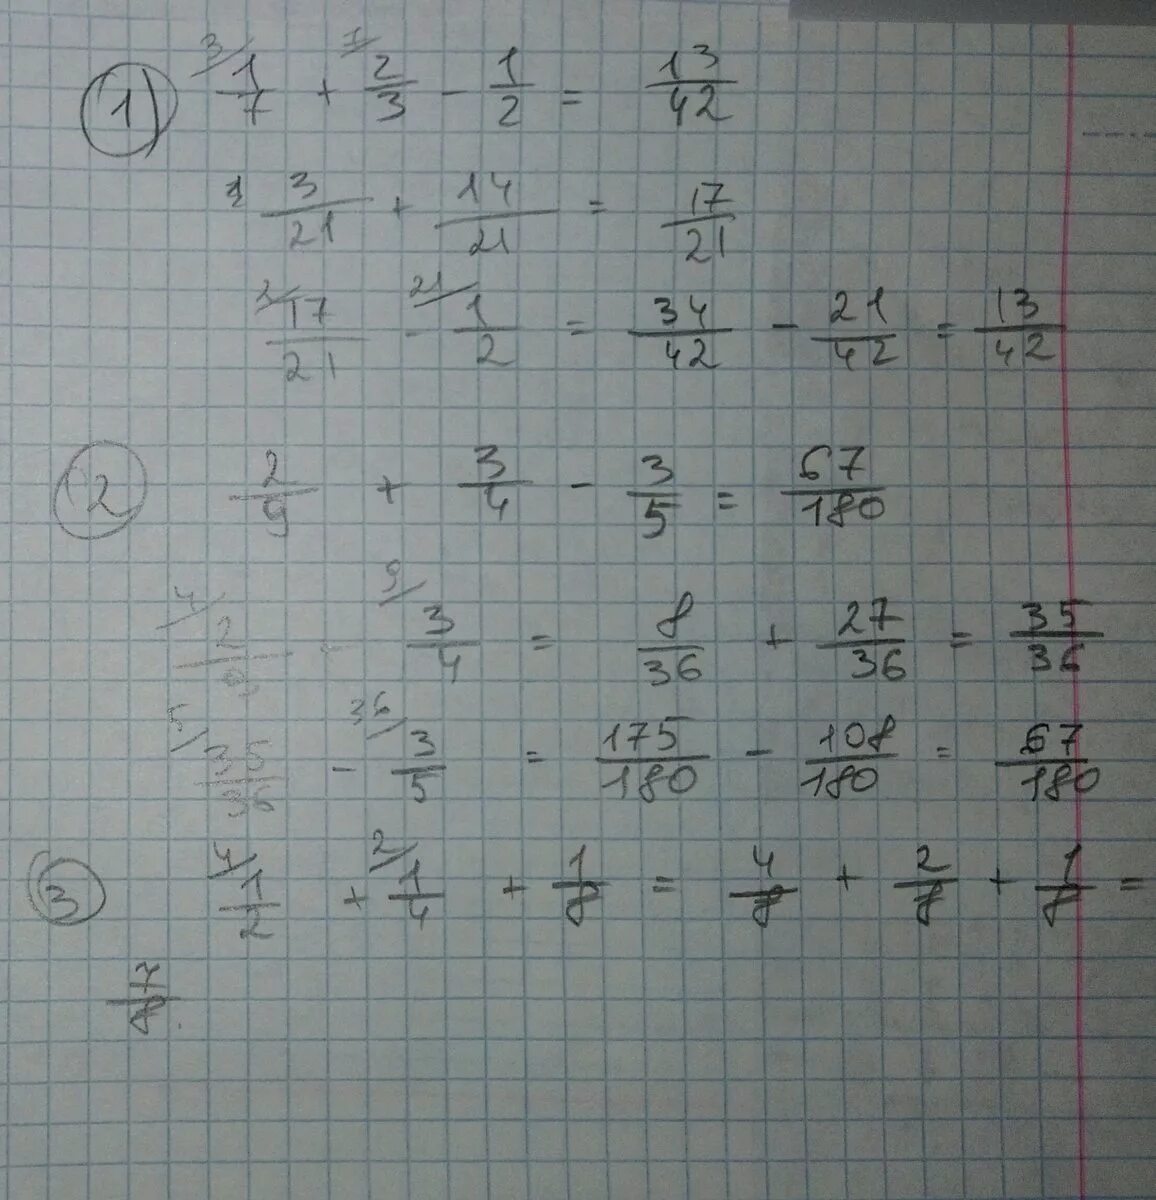 1) 3/ 1/7 + 7/ 2/3 - 1/2 = 13/42
1 3/21 + 14/21 = 17/21
2/ 17/21 - 21/ 1/2 = 34/42 - 21/42 = 13/42
2 2/9 + 3/4 - 3/5 = 67/180
4/ 2/9 - 9/ 3/4 = 8/36 + 27/36 = 35/36
5/ 35/36 - 36/ 3/5 = 175/180 - 108/180 = 67/180
3 4/ 1/2 + 2/ 1/4 + 1/8 = 4/8 + 2/8 + 1/8 =
7/8